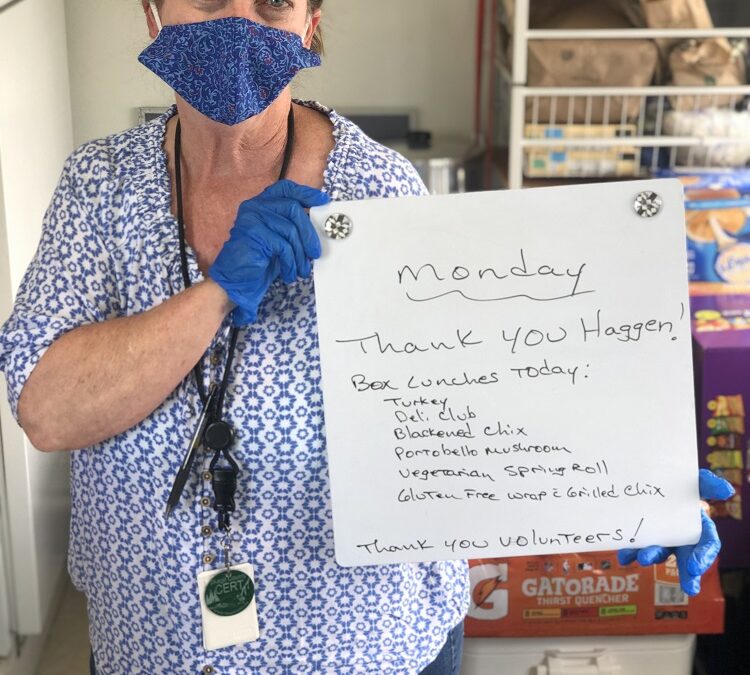 monday
Thank you Haggen!
Box Lunches Today:
Turkey
Deli Club
Blackened Chix
Portobello Mushroom
Vegetarian Spring Roll
Gluten Free Wrap c̄ Grilled Chix
Thank you volunteers!
CERT
GATORADE
THIRST QUENCHER